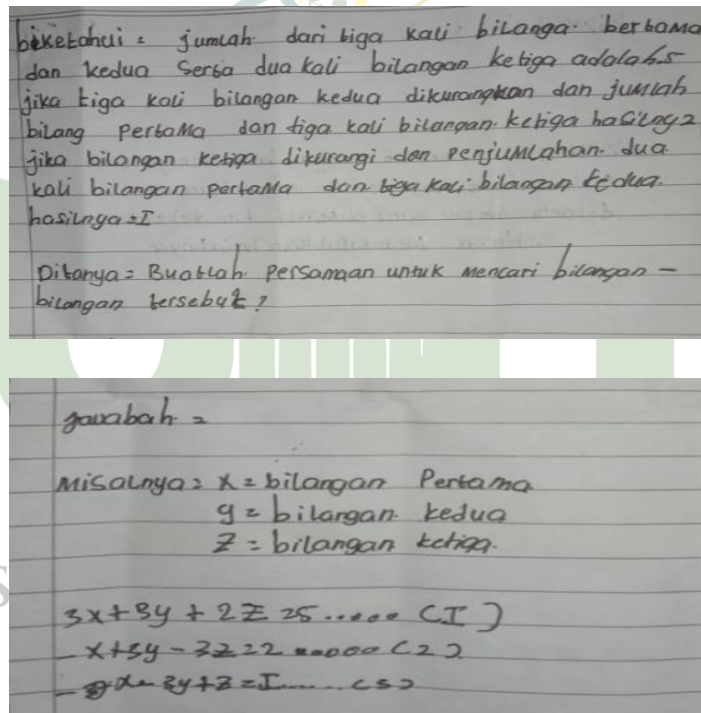 diketahui = jumlah dari tiga kali bilanga bertama
dan kedua Serta dua kali bilangan ketiga adalah 5
jika tiga kali bilangan kedua dikurangkan dan jumlah
bilang PertaMa dan tiga kali bilangan ketiga hasilnya 2
jika bilangan ketiga dikurangi dan PenjuMLahan dua
kali bilangan pertaMa dan tiga kali bilangan kedua.
hasilnya = I
Ditanya = Buatlah Persamaan untuk Mencari bilangan -
bilangan tersebut ?
Jawabah =
Misalnya = x = bilangan Pertama
y = bilangan kedua
Z = bilangan ketiga.
3x + 3y + 2Z = 5 ..... (I)
- x + 3y - 3z = 2 ..... (2)
x - 3y + z = I ..... (3)